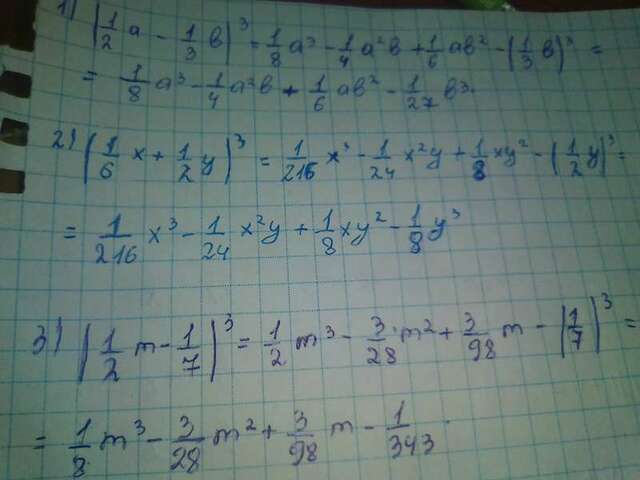 1) (1/2 a - 1/3 b)^3 = 1/8 a^3 - 1/4 a^2b + 1/6 ab^2 - (1/3 b)^3 =
= 1/8 a^3 - 1/4 a^2b + 1/6 ab^2 - 1/27 b^3.
2) (1/6 x + 1/2 y)^3 = 1/216 x^3 - 1/24 x^2y + 1/8 xy^2 - (1/2 y)^3 =
= 1/216 x^3 - 1/24 x^2y + 1/8 xy^2 - 1/8 y^3
3) (1/2 m - 1/7)^3 = 1/2 m^3 - 3/28 m^2 + 3/98 m - (1/7)^3 =
= 1/8 m^3 - 3/28 m^2 + 3/98 m - 1/343.